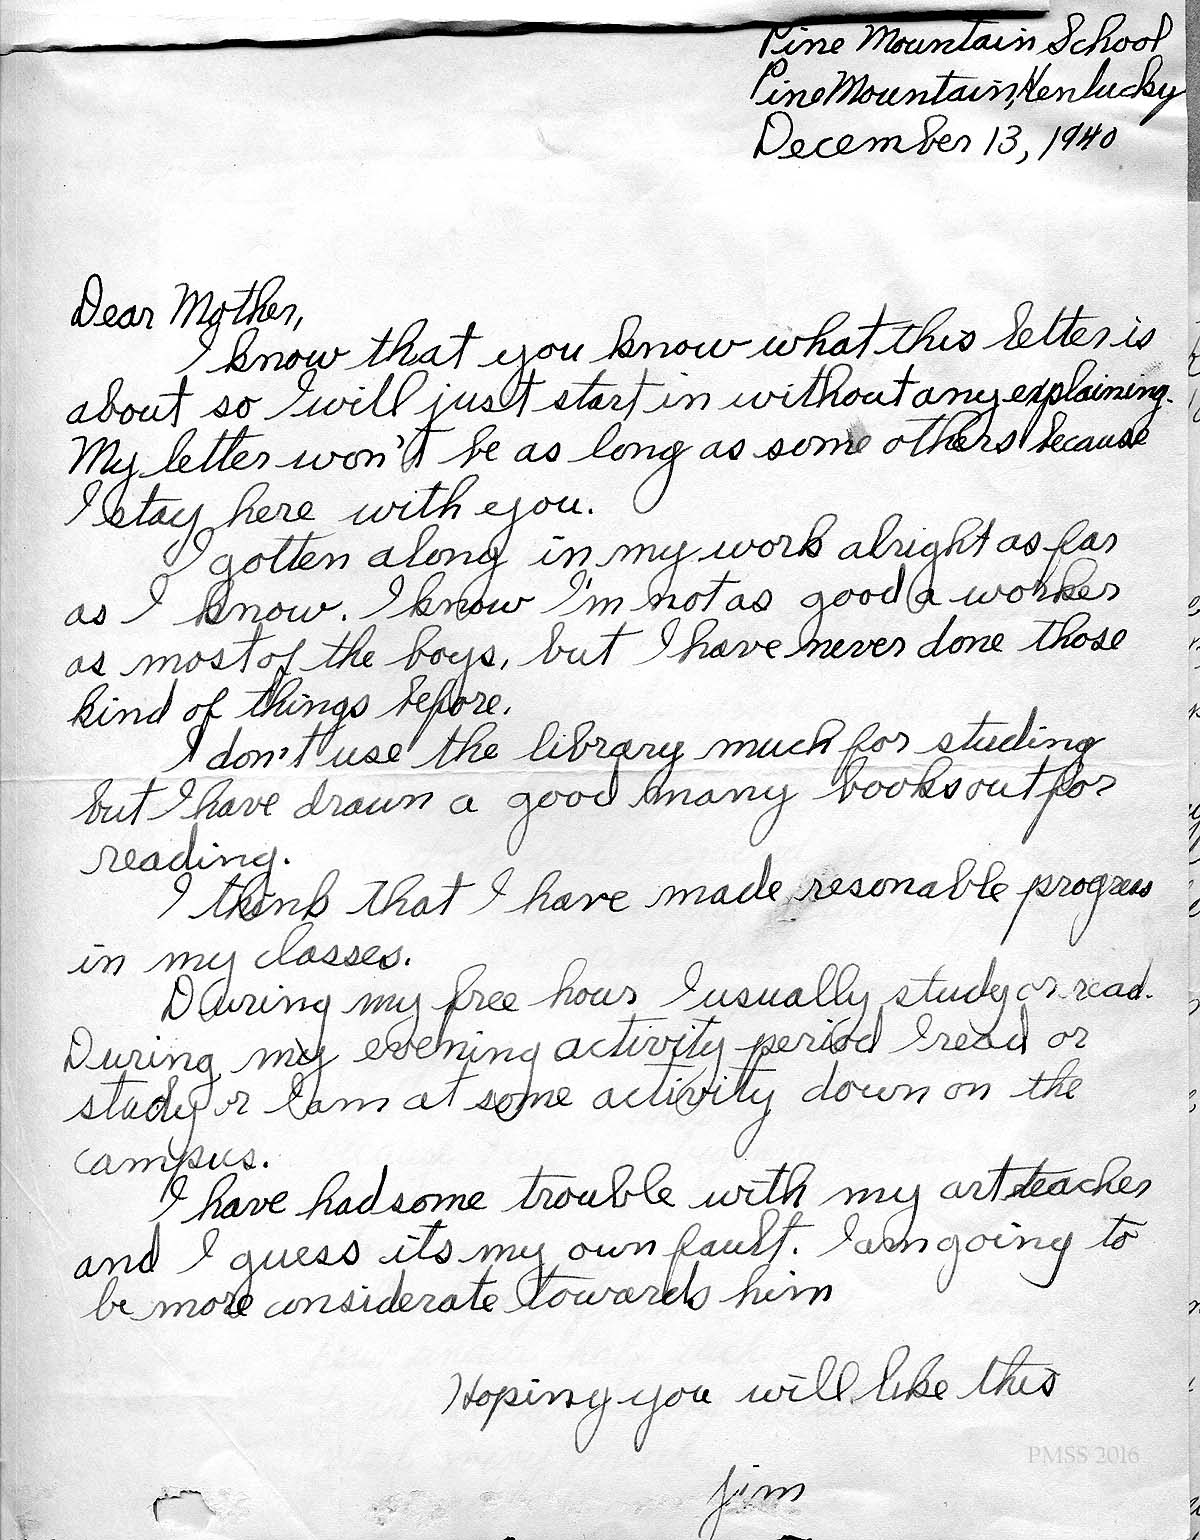 Pine Mountain School
Pine Mountain, Kentucky
December 13, 1940
Dear Mother,
I know that you know what this letter is
about so I will just start in without any explaining.
My letter won't be as long as some others because
I stay here with you.
I gotten along in my work alright as far
as I know. I know I'm not as good a worker
as most of the boys, but I have never done those
kind of things before.
I don't use the library much for studing
but I have drawn a good many books out for
reading.
I think that I have made resonable progress
in my classes.
During my free hour I usually study or read.
During my evening activity period I read or
study or I am at some activity down on the
campus.
I have had some trouble with my art teacher
and I guess its my own fault. I am going to
be more considerate towards him
Hoping you will like this
Jim
PMSS 2016